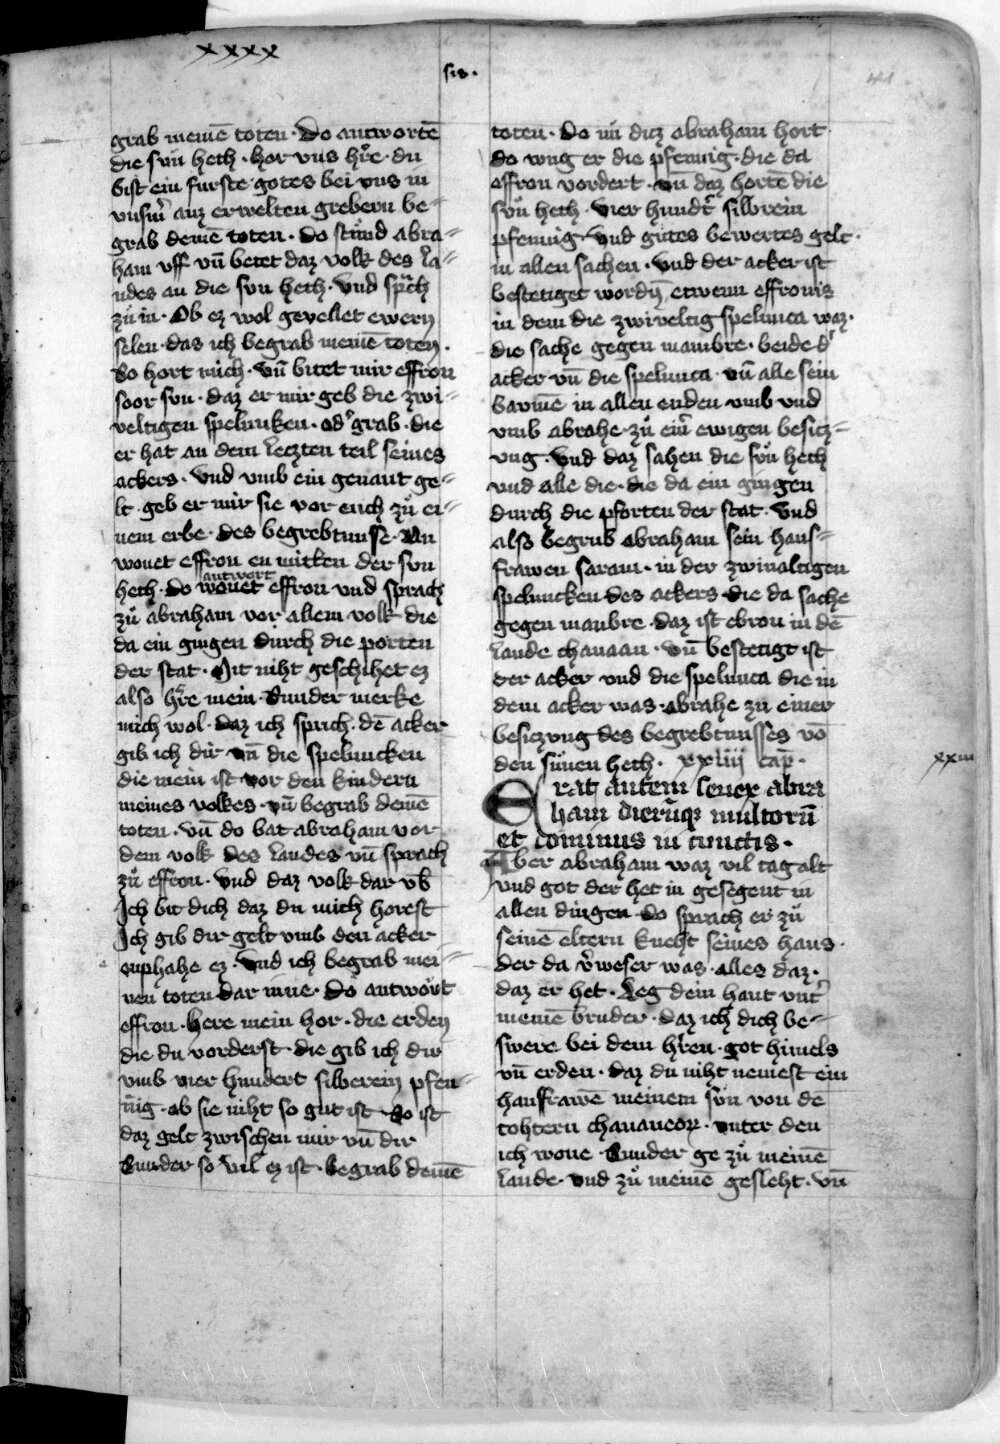 xxxx
sis.
41
grab meinē toten · Do antwortē
die sun heth · hor vns hr̄e · du
bist ein furste gotes bei vns in
vnsm̄ auz erwelten grebern be=
grab deinē toten · do stůnd abra=
ham vff vn̄ betet daz volk des la=
ndes an die sun heth · vnd sprach
zů in · Ob ez wol gevellet ewern
selen · das ich begrab meinē toten ·
So hort mich · vn̄ bitet mir effron
soor sun · daz er mir geb die zwi=
veltigen spelunken · od' grab · die
er hat an dem leczten teil seines
ackers · vnd vmb ein genant ge=
lt · geb er mir sie vor euch zů ei=
nem erbe · des begrebtnusse · Nu
wonet effron en mitten der sun
antwort
heth · do wonet effron vnd sprach
zů abraham vor allem volk die
da ein gingen durch die porten
der stat · Mit niht geschihet ez
also hr̄e mein · Sunder merke
mich wol · daz ich sprich · dē acker
gib ich dir vn̄ die speluncken
die mein ist vor den kindern
meines volkes · vn̄ begrab deinē
toten · vn̄ do bat abraham vor
dem volk des landes vn̄ sprach
zů effron · vnd daz volk dar vb̄
Ich bit dich daz du mich horest
Ich gib dir gelt vmb den acker
enphahe ez · vnd ich begrab mei=
nen toten dar inne · Do antwort
effron · here mein hor · die erden
die du vorderst · die gib ich dir
vmb vier hundert silberein pfen=
nig · ob sie niht so gut ist · So ist
daz gelt zwischen mir vn̄ dir
Sunder so vil ez ist · begrab deinē
toten · Do nu diz abraham hort
do wug er die pfennig · die da
effron vordert · vn̄ daz hortē die
sůn heth · vier hundt' silbrein
pfennig · vnd gutes bewertes gelt ·
in allen sachen · vnd der acker ist
bestetiget wordn̄ etwenn effronis
in dem die zwiveltig spelunca waz ·
die sache gegen mambre · beide d'
acker vn̄ die spelunca · vn̄ alle sein
bavme in allen enden vmb vnd
vmb abrahe zů ein̄ ewigen besicz=
vng · vnd daz sahen die sůn heth
vnd alle die · die da ein gingen
durch die pforten der stat · vnd
also begrub abraham sein haus=
frawen saram · in der zwinaltigen
speluncken des ackers · die da sache
gegen manbre · daz ist ebron in dē
lande chanaan · vn̄ bestetigt ist
der acker vnd die spelunca die in
dem acker was · abrahe zu einer
besiczvng des begrebtnusses vō
den sůnen heth · xxiiij cap̄ ·
xxiiii
Erat autem senex abra
ham dierūq3 multorū
et dominus in cunctis ·
Aber abraham waz vil tag alt
vnd got der het in gesegent in
allen dingen · do sprach er zů
seinē eltern kneht seines haus ·
der da v̄weser was · alles daz ·
daz er het · Leg dein hant vnt'
meinē bruder · daz ich dich be=
swere bei dem hr̄en · got himels
vn̄ erden · daz du niht nemest ein
hausfrawē meinem sůn von dē
tohtern chananeor̄ · vnter den
ich wone · Sunder ge zů meinē
lande · vnd zů meinē gesleht · vn̄